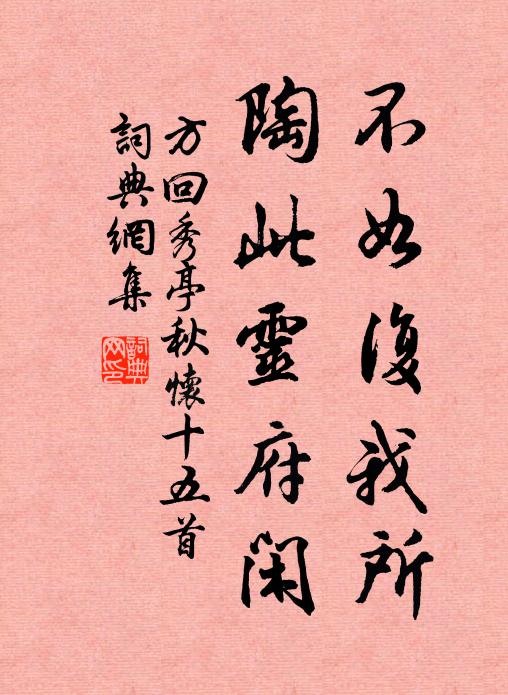 不如復我所
陶此靈府閑
方回秀亭秋懷十五首
詞典網集
詞典網印